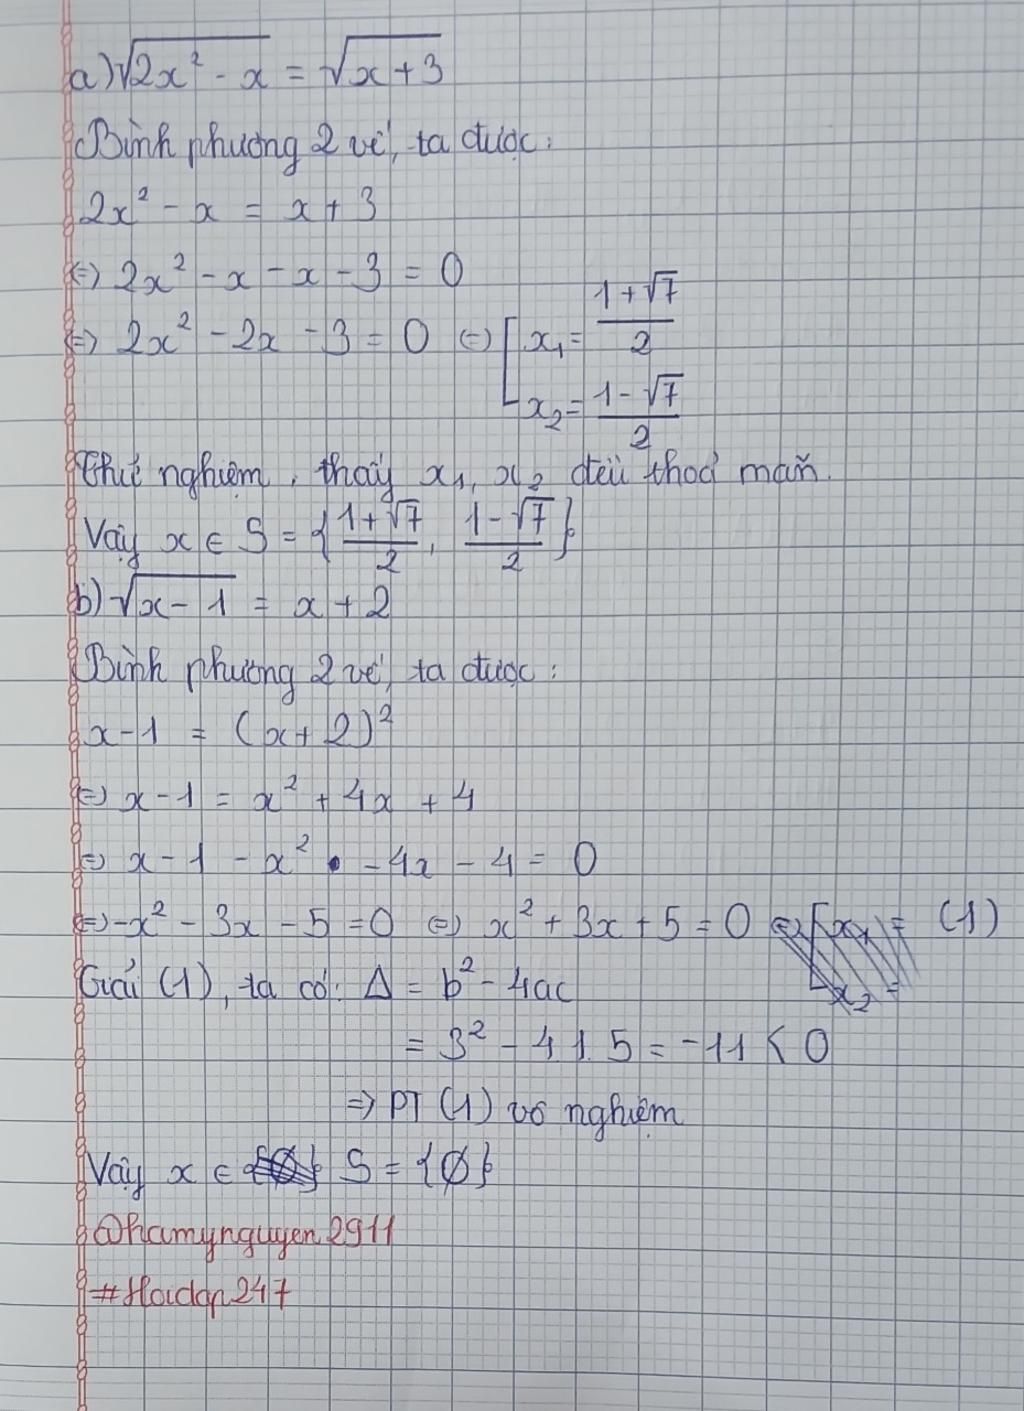 a) √(2x² - x) = √(x+3)
Bình phương 2 vế, ta được:
2x² - x = x + 3
⇔ 2x² - x - x - 3 = 0
⇔ 2x² - 2x - 3 = 0 ⇔ [ x₁ = (1+√7)/2
x₂ = (1-√7)/2
Thử nghiệm, thấy x₁, x₂ đều thoả mãn.
Vậy x ∈ S = { (1+√7)/2, (1-√7)/2 }
b) √(x-1) = x + 2
Bình phương 2 vế, ta được:
x - 1 = (x+2)²
⇔ x - 1 = x² + 4x + 4
⇔ x - 1 - x² - 4x - 4 = 0
⇔ -x² - 3x - 5 = 0 ⇔ x² + 3x + 5 = 0 (1)
Giải (1), ta có: Δ = b² - 4ac
= 3² - 4.1.5 = -11 < 0
⇒ PT (1) vô nghiệm
Vậy x ∈ S = {∅}
@hamynguyen2911
#Hoidap247